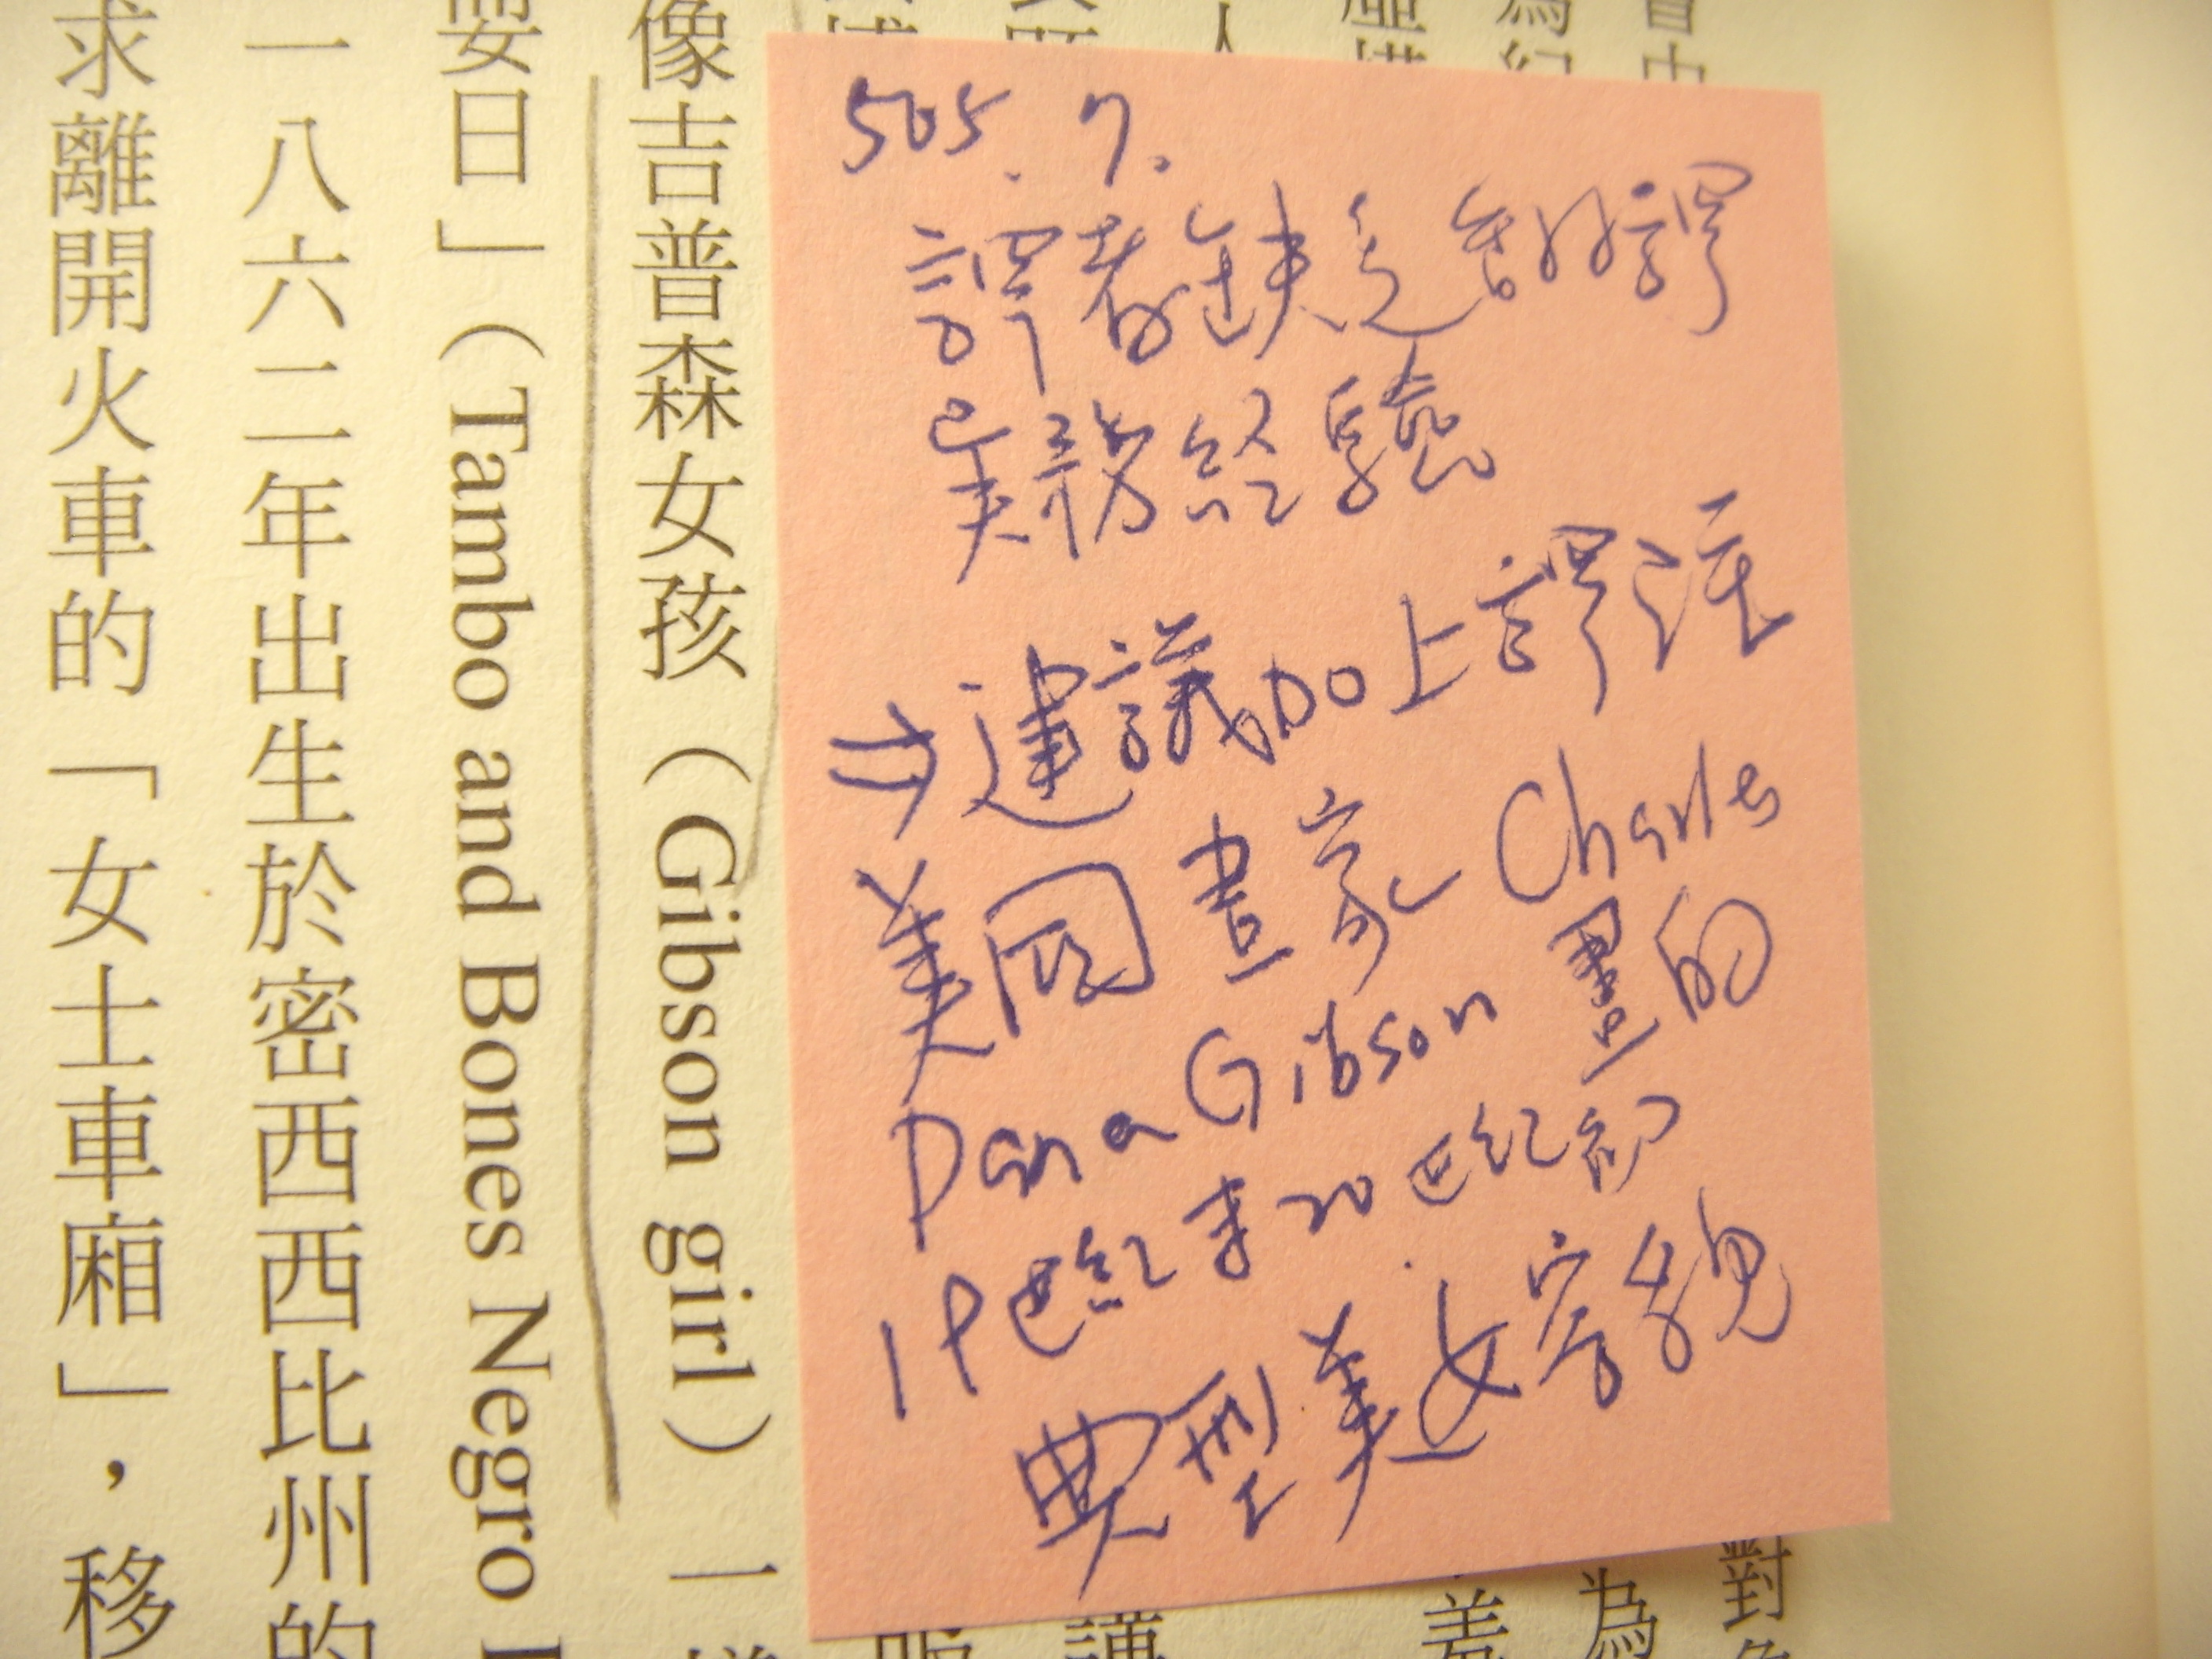 505. 7.
譯者缺乏翻譯
實務經驗
⇒建議加上譯注
美國畫家 Charles
Dana Gibson 畫的
19世紀末20世紀初
典型美女容貌
像吉普森女孩(Gibson girl)一
日」(Tambo and Bones Negro
一八六二年出生於密西西比州的
求離開火車的「女士車廂」,移